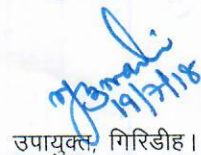 19/7/18
उपायुक्त, गिरिडीह।